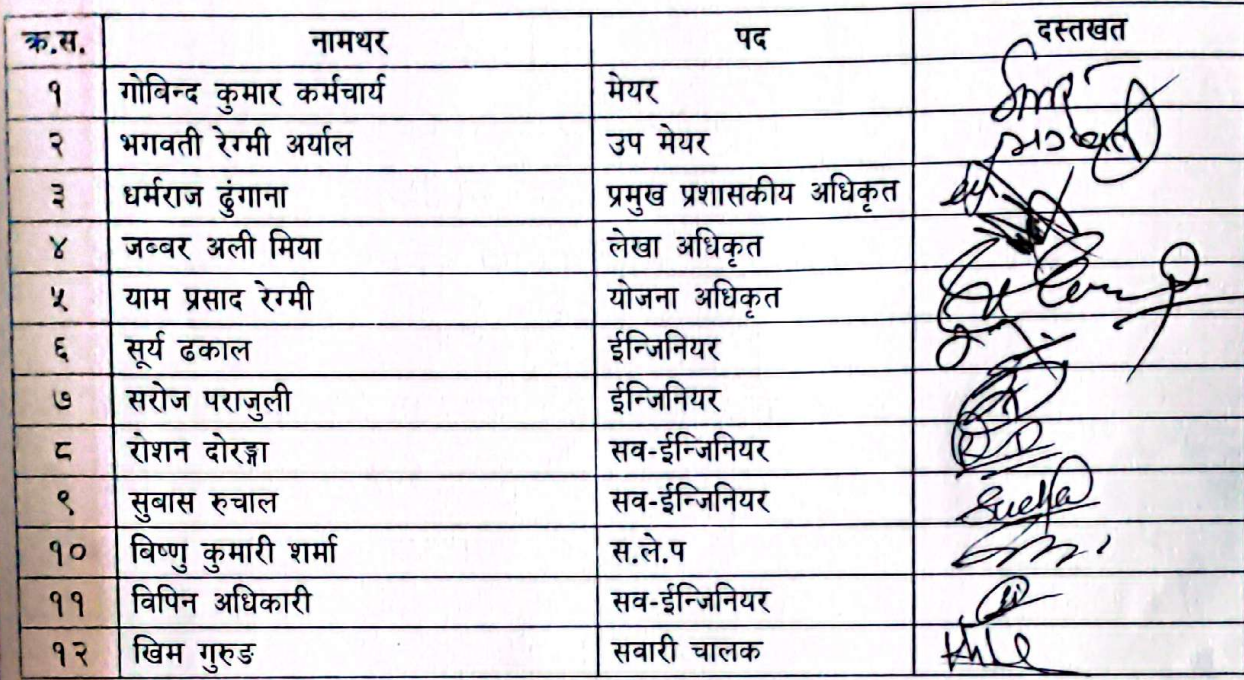 क्र.स. नामथर पद दस्तखत
१ गोविन्द कुमार कर्मचार्य मेयर
२ भगवती रेग्मी अर्याल उप मेयर
३ धर्मराज ढुंगाना प्रमुख प्रशासकीय अधिकृत
४ जब्बर अली मिया लेखा अधिकृत
५ याम प्रसाद रेग्मी योजना अधिकृत
६ सूर्य ढकाल ईन्जिनियर
७ सरोज पराजुली ईन्जिनियर
८ रोशन दोरङ्गा सव-ईन्जिनियर
९ सुबास रुचाल सव-ईन्जिनियर
१० बिष्णु कुमारी शर्मा स.ले.प
११ विपिन अधिकारी सव-ईन्जिनियर
१२ खिम गुरुङ सवारी चालक